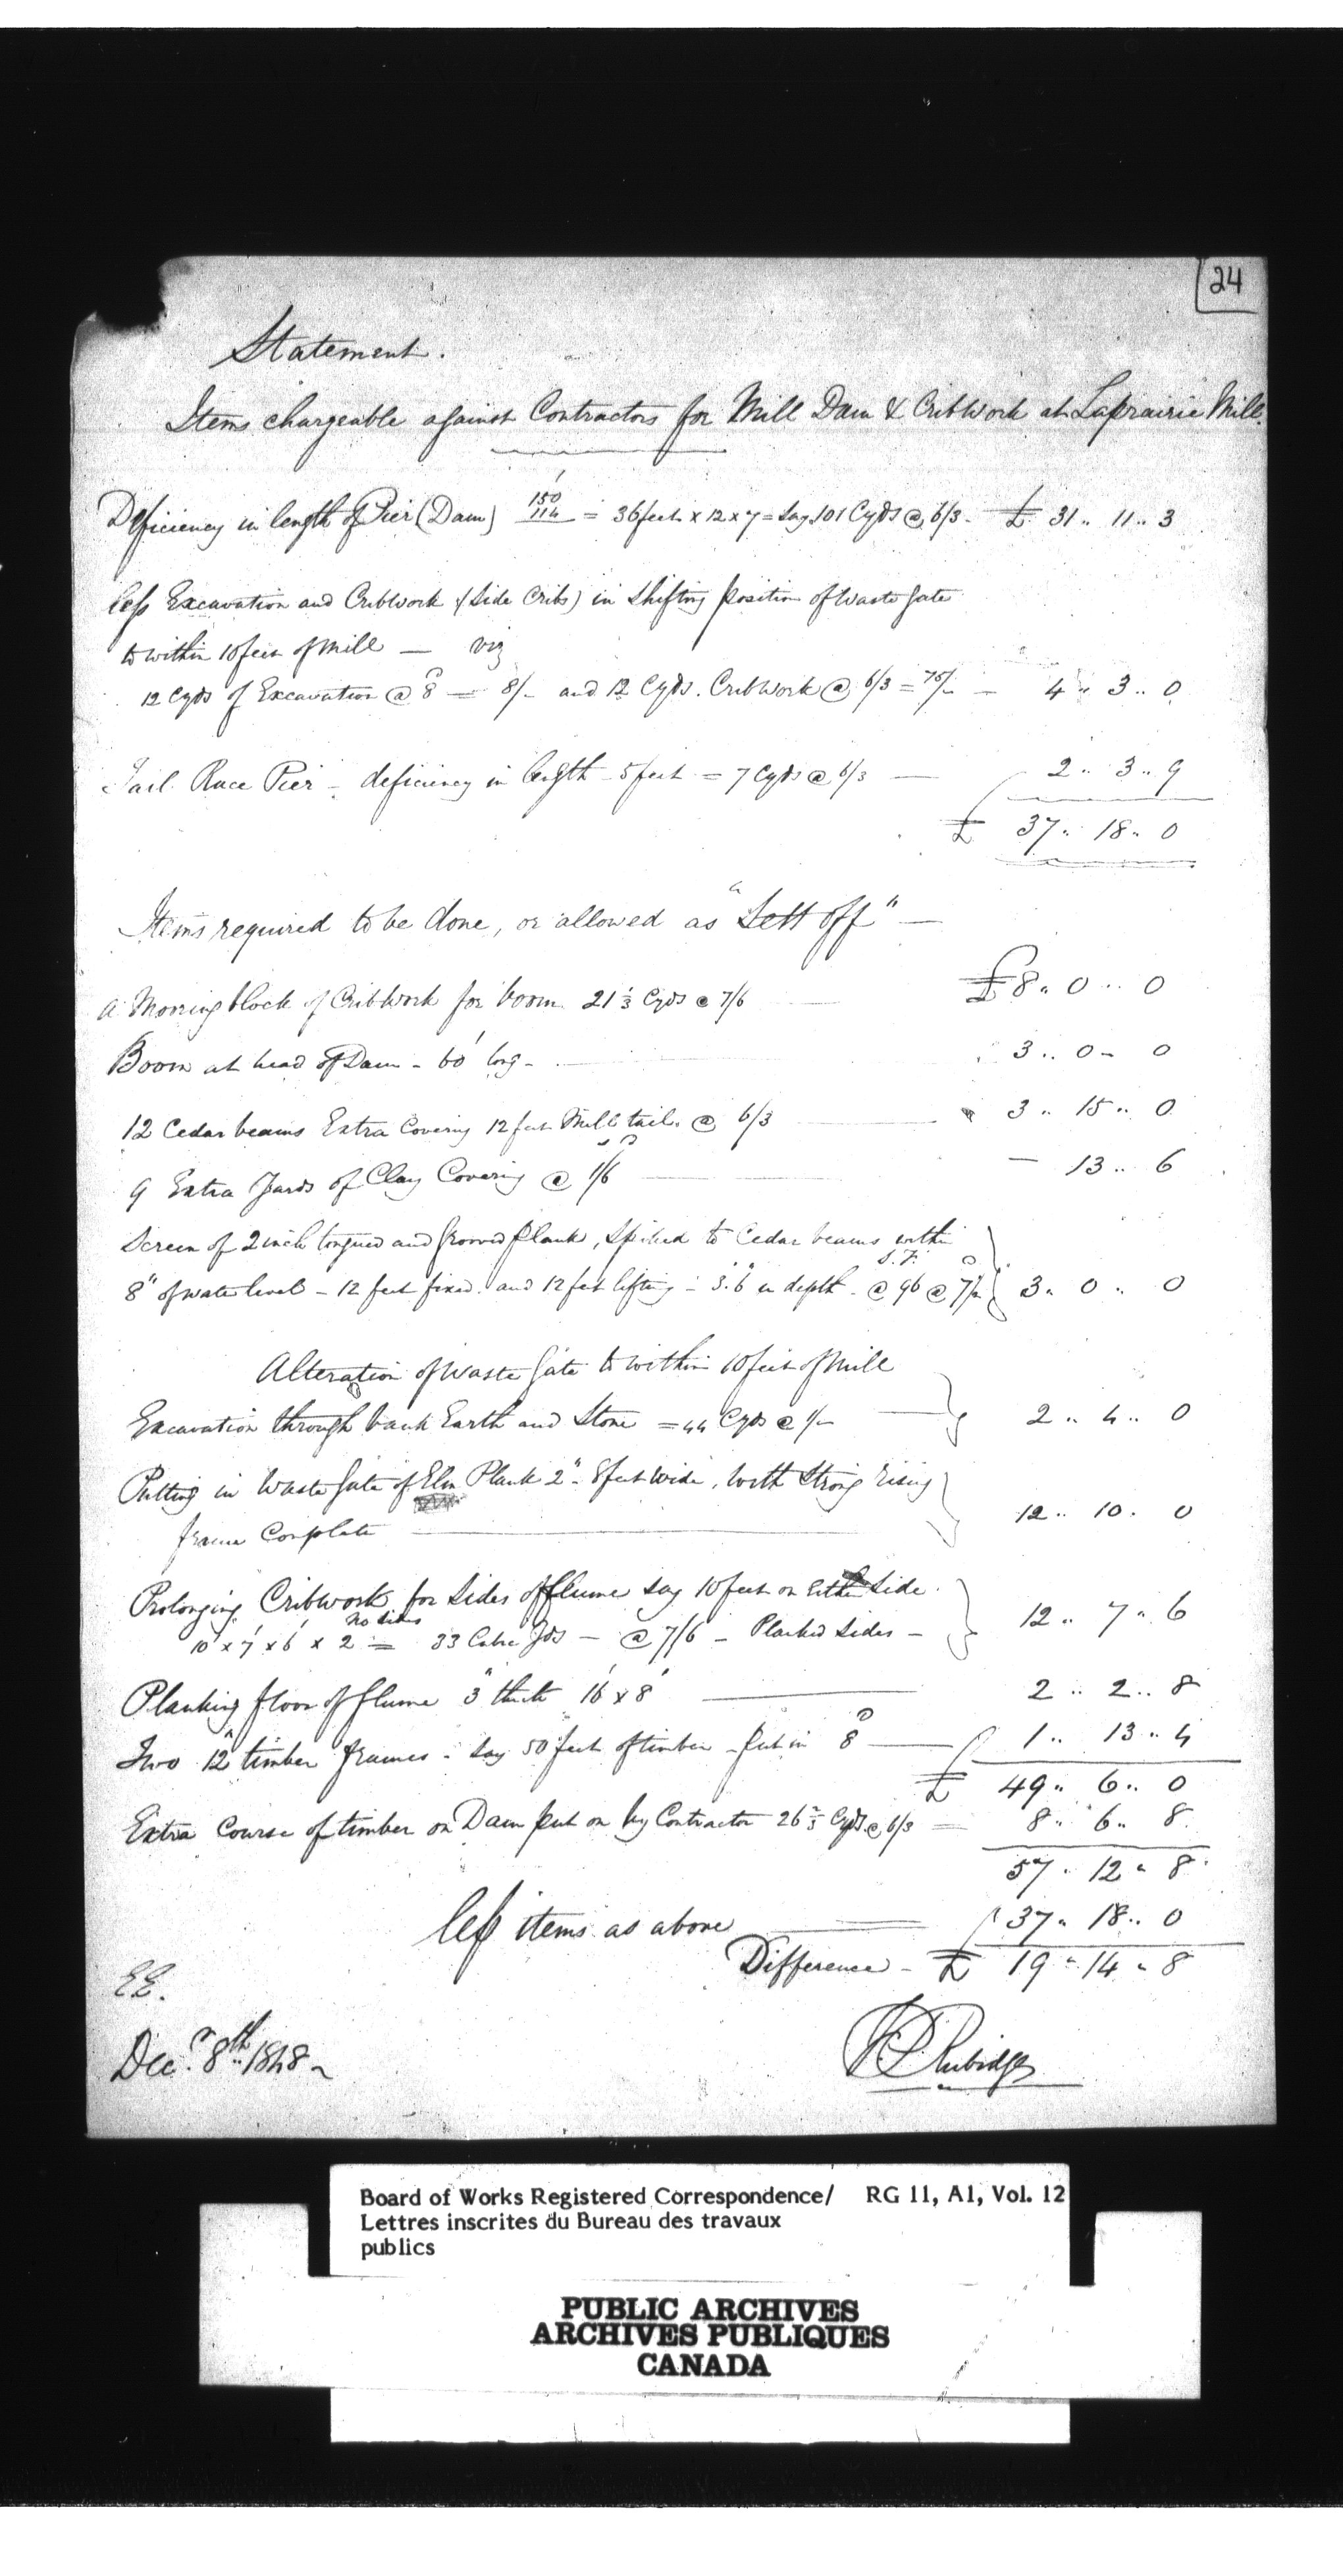 24
Statement.
Items chargeable against Contractors for Mill Dam & Cribwork at Laprairie Mill.
Deficiency in length of Pier (Dam) 150'
114 = 36 feet x 12 x 7 = say 101 Cyds @ 6/3 - £ 31 .. 11 .. 3
less Excavation and Cribwork (Side Cribs) in shifting position of Waste Gate
to within 10 feet of Mill — viz
12 Cyds of Excavation @ 8d = 8/- and 12 Cyds. Cribwork @ 6/3 = 75/- - 4 .. 3 .. 0
Tail Race Pier - deficiency in length - 5 feet = 7 Cyds @ 6/3 — 2 .. 3 .. 9
£ 37 .. 18 .. 0
Items required to be done, or allowed as "Sett off" —
A Mooring block of Cribwork for boom 21 1/3 Cyds @ 7/6 £ 8 .. 0 .. 0
Boom at head of Dam - 60' long - 3 .. 0 - 0
12 Cedar beams Extra Covering 12 feet Mill tail. @ 6/3 3 .. 15 .. 0
9 Extra Yards of Clay Covering @ 1/6 — 13 .. 6
Screen of 2 inch tongued and grooved plank, spiked to Cedar beams within
8" of water level - 12 feet fixed and 12 feet lifting - 3'.6" in depth - @ 96 S.F. @ 7½d 3 .. 0 .. 0
Alteration of Waste Gate to within 10 feet of Mill
Excavation through bank Earth and Stone = 44 Cyds @ 1/- — 2 .. 4 .. 0
Putting in Waste Gate of Elm Plank 2" - 8 feet wide, with strong rising
frame Complete — 12 .. 10 . 0
Prolonging Cribwork for sides of flume say 10 feet on Either side.
10' x 7' x 6' x 2 no sides = 33 Cube Yds - @ 7/6 - Planked sides - 12 .. 7 .. 6
Planking floor of flume 3" thick 16' x 8' — 2 .. 2 .. 8
Two 12" timber frames - say 50 feet of timber - put in 8d — 1 .. 13 .. 4
£ 49 .. 6 .. 0
Extra Course of timber on Dam put on by Contractor 26 2/3 Cyds @ 6/3 = 8 .. 6 .. 8
57 .. 12 .. 8
less items as above — 37 .. 18 .. 0
Difference - £ 19 .. 14 .. 8
EE.
Decr. 8th 1848 -
F P Rubidge
Board of Works Registered Correspondence/ RG 11, A1, Vol. 12
Lettres inscrites du Bureau des travaux
publics
PUBLIC ARCHIVES
ARCHIVES PUBLIQUES
CANADA